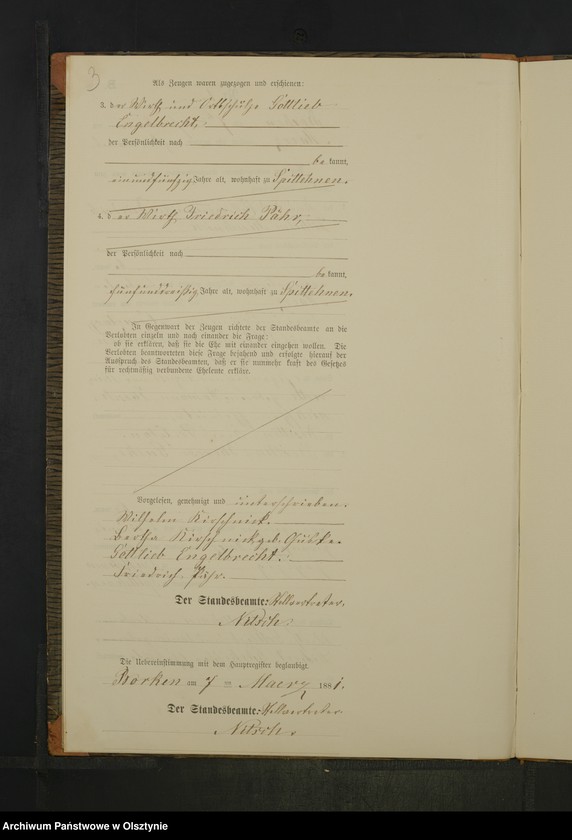 3
Als Zeugen waren zugezogen und erschienen:
3. der Wirth und Ortsschulze Gottlieb
Engelbrecht,
der Persönlichkeit nach
be kannt,
einundfünfzig Jahre alt, wohnhaft zu Spittehnen.
4. der Wirth Friedrich Pähr,
der Persönlichkeit nach
be kannt,
fünfunddreißig Jahre alt, wohnhaft zu Spittehnen.
In Gegenwart der Zeugen richtete der Standesbeamte an die
Verlobten einzeln und nach einander die Frage:
ob sie erklären, daß sie die Ehe mit einander eingehen wollen. Die
Verlobten beantworteten diese Frage bejahend und erfolgte hierauf der
Ausspruch des Standesbeamten, daß er sie nunmehr kraft des Gesetzes
für rechtmäßig verbundene Eheleute erkläre.
Vorgelesen, genehmigt und unterschrieben.
Wilhelm Kirschnick.
Bertha Kirschnick geb.
Gottlieb Engelbrecht.
Friedrich Pähr.
Der Standesbeamte: Stellvertreter.
Nitsch.
Die Uebereinstimmung mit dem Hauptregister beglaubigt.
Borken am 7 ten Maerz 1881.
Der Standesbeamte: Stellvertreter
Nitsch.
Archiwum Państwowe w Olsztynie